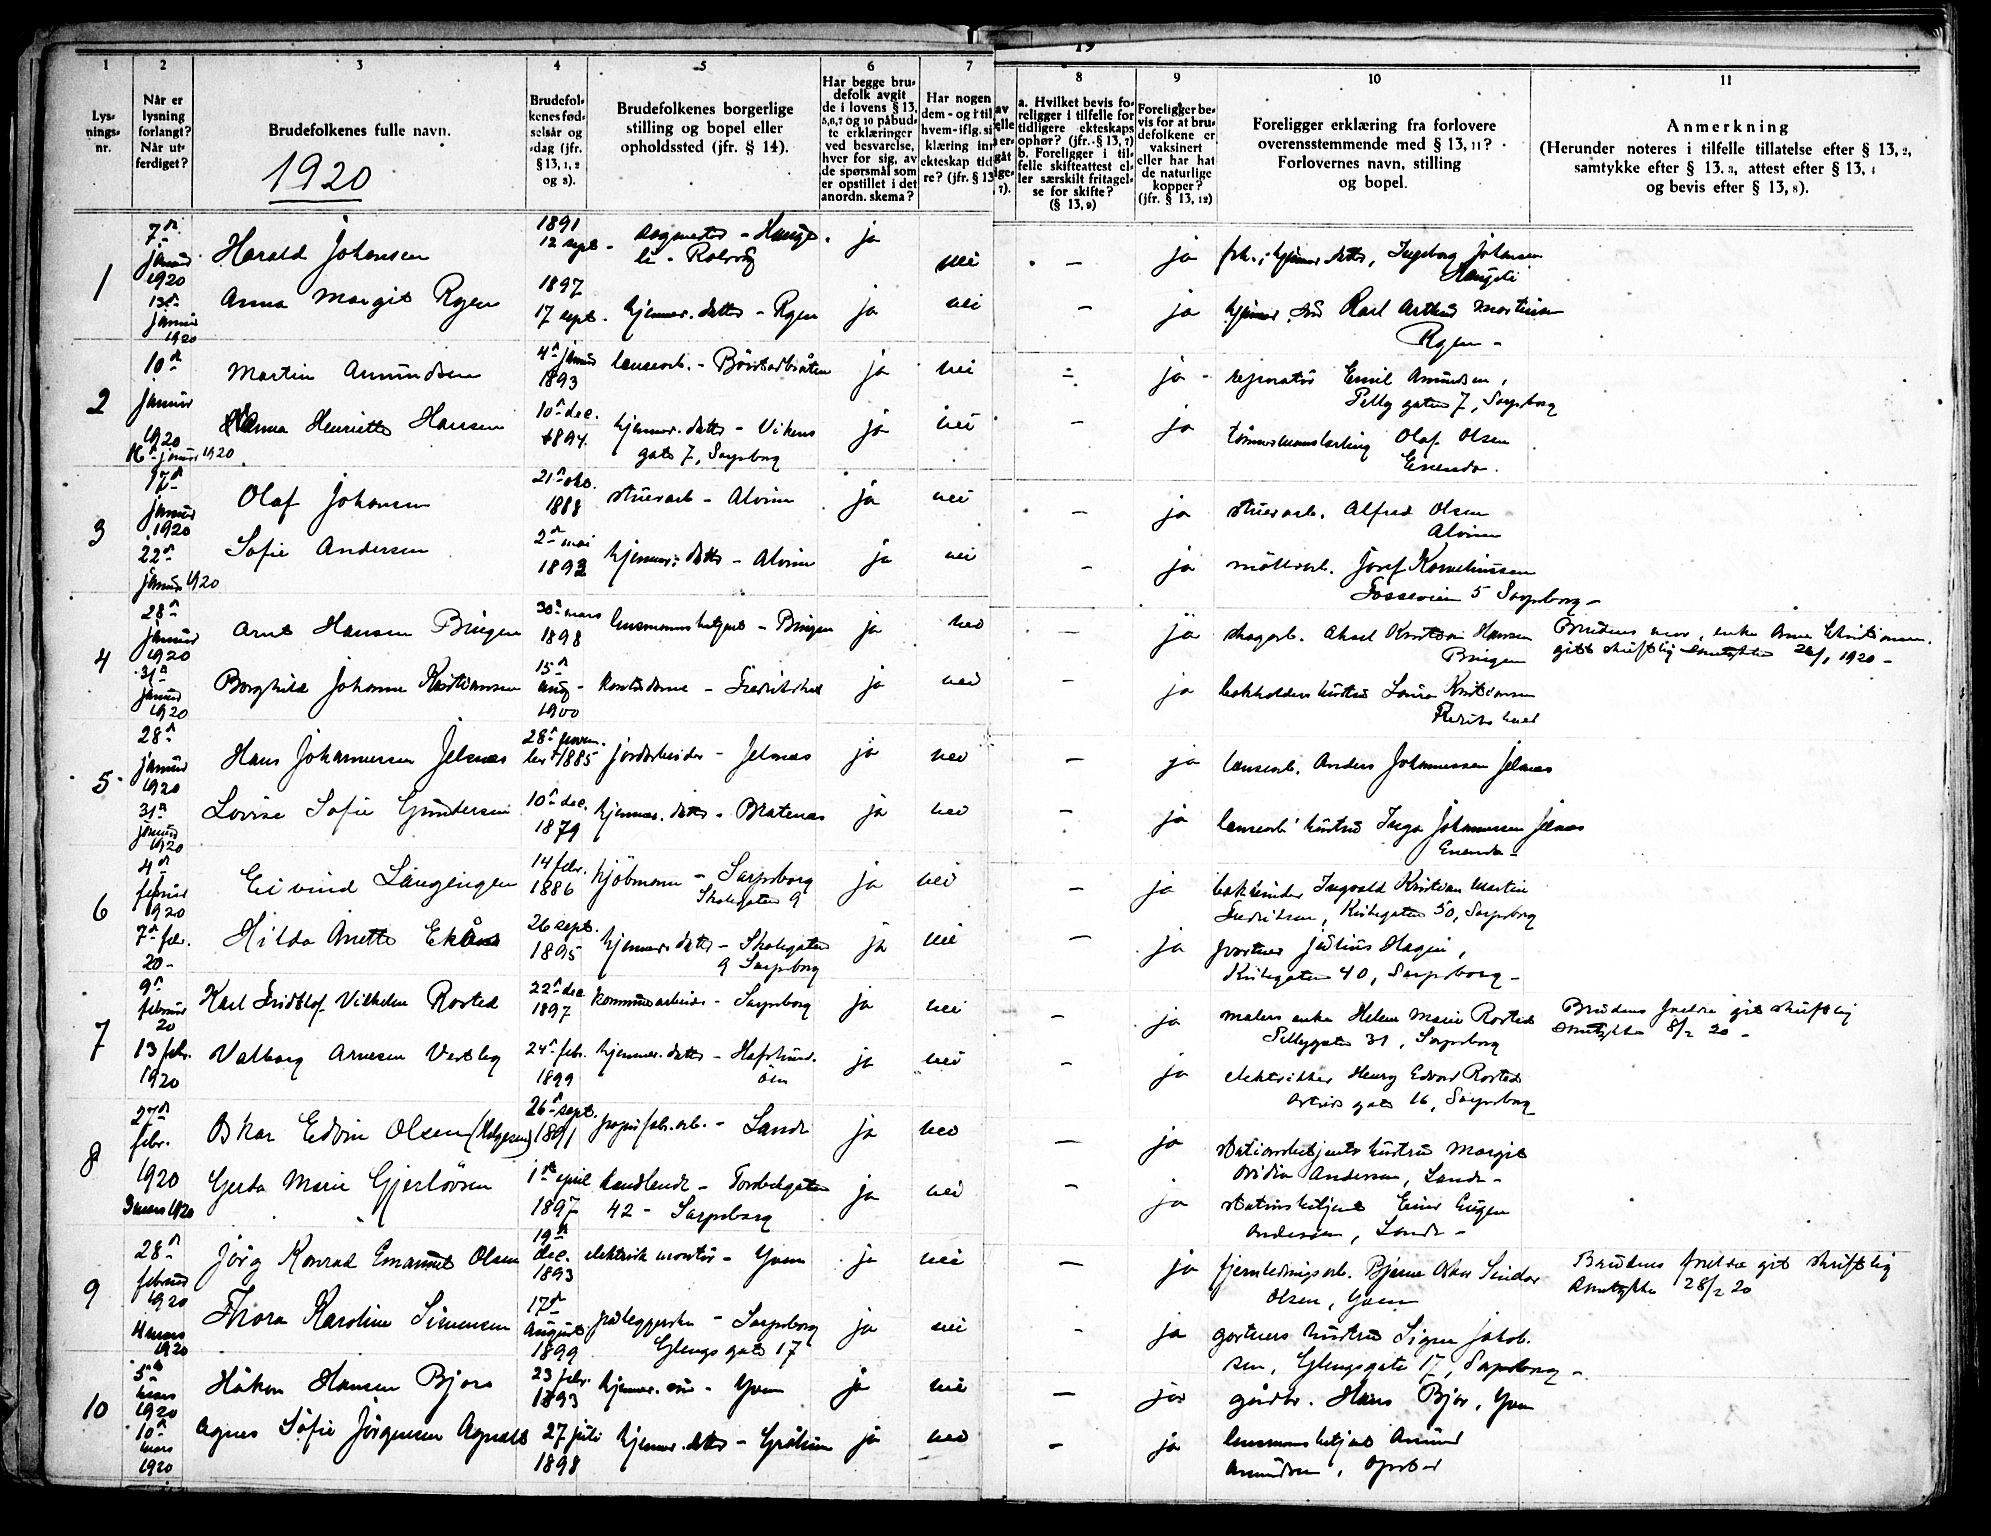 19
1
2
3
4
5
6
7
8
9
10
11
Lys-
nings-
nr.
Når er
lysning
forlangt?
Når ut-
ferdiget?
Brudefolkenes fulle navn.
1920
Brudefol-
kenes fød-
selsår og
-dag (jfr.
§ 13, 1, 2
og 3).
Brudefolkenes borgerlige
stilling og bopel eller
opholdssted (jfr. § 14).
Har begge bru-
defolk avgit
de i lovens § 13,
5,6,7 og 10 påbud-
te erklæringer
ved besvarelse,
hver for sig, av
de spørsmål som
er opstillet i det
anordn. skema?
Har nogen av
dem - og i til
hvem - iflg. si
klæring inn
ekteskap tid
re? (jfr. § 13
a. Hvilket bevis fo-
religger i tilfelle for
tidligere ekteskaps
ophør? (jfr. § 13, 7)
b. Foreligger i til-
felle skifteattest el-
ler særskilt fritagel-
se for skifte?
(§ 13, 9)
Foreligger be-
vis for at bru-
defolkene er
vaksinert
eller har hat
de naturlige
kopper?
(jfr. § 13, 12)
Foreligger erklæring fra forlovere
overensstemmende med § 13, 11?
Forlovernes navn, stilling
og bopel.
Anmerkning
(Herunder noteres i tilfelle tillatelse efter § 13, 2,
samtykke efter § 13, 3, attest efter § 13, 4
og bevis efter § 13, 8).
1
7de januar 1920
Harald Johansen
1891 12 sept.
ja nei - ja
Ingeborg Johansen
13de januar 1920
Anna Margit Rgen
1897 17 sept.
hjemmev. datter - Rgen
ja nei - ja
Karl Arthur Martinsen
Rgen -
2
10de januar 1920
Martin Amundsen
4de januar 1893
ja nei - ja
reperatør Emil Amundsen,
Pellygaten 7, Sarpsborg
16de januar 1920
Anna Henriette Hansen
10de dec. 1894
hjemmev. datter - Vikens
gate 7, Sarpsborg
ja nei - ja
Olaf Olsen
Ensteds.
3
17de januar 1920
Olaf Johansen
21de okt. 1888
stuerarb. - Alvim
ja nei - ja
stuerarb. Alfred Olsen
Alvim
22de januar 1920
Sofie Andersen
2den mai 1892
hjemmev. datter - Alvim
ja nei - ja
Josef Korneliussen
Fosseveien 5 Sarpsborg -
4
28de januar 1920
Arne Hansen Bingen
30te mars 1898
lensmannsbetjent - Bingen
ja nei - ja
skogarb. Aksel Kristian Hansen
Bingen
Brudens mor, enke Anna Christiansen
gitt skriftlig samtykke 26/1 1920 -
31te januar 1920
Borghild Johanne Kristiansen
15de aug. 1900
kontordame - Fredrikstad
ja nei - ja
bokholders hustru Laura Kristiansen
5
28de januar 1920
Hans Johannessen Jelsnæs
1885
jordarbeider - Jelsnæs
ja nei - ja
lænsearb. Anders Johannessen Jelsnæs
31te januar 1920
Lovise Sofie Gundersen
10de dec. 1879
hjemmev. datter - Bratenæs
ja nei - ja
lænsearb. hustru Inga Johannessen Jelsnæs
6
4de februar 1920
Eivind Langengen
14 febr. 1886
kjøbmann - Sarpsborg
Skolegaten 9
ja nei - ja
bokbinder Ingvald Kristian Martin
Fredriksen, Kirkegaten 50, Sarpsborg
7de febr. 20 -
Hilda Anette Ekås
26 sept. 1895
hjemmev. datter - Skolegaten
9 Sarpsborg
ja nei - ja
portner Julius Hagen,
Kirkegaten 40, Sarpsborg -
7
9de februar 20
Karl Fridtlof Vilhelm Rosted
22de dec 1897
kommunearbeider - Sarpsborg
ja nei - ja
malers enke Helene Marie Rosted
Pellygaten 31, Sarpsborg
Brudens foreldre git skriftlig
samtykke 8/2 20 -
13 febr. 1920
Valborg Arnesen Vestby
24de febr. 1899
hjemmev. datter - Hafslund.
ja nei - ja
elektriker Henry Edvard Rosted
gate 16, Sarpsborg
8
27de febr. 1920
Oskar Edvin Olsen (Helgesen)
26de sept. 1891
papirfabr.arb. - Sande
ja nei - ja
stationsbetjents hustru Margit
Ovidia Andersen, Sande -
3 mars 1920
Gerda Marie Gjerløvsen
1ste april 1897
handlende - Tordenskgaten
42 - Sarpsborg
ja nei - ja
stationsbetjent Einar Eugen
Andersen, Sande -
9
28de februar 1920
Jørg Konrad Emanuel Olsen
19de dec. 1893
elektrisk montør - Yven
ja nei - ja
fjernledningsarb. Bjarne Oskar Sindar
Olsen, Yven
Brudens foreldre git skriftlig
samtykke 28/2 20
4 mars 1920
Thora Karoline Simensen
17de august 1899
- Sarpsborg
Glengsgate 17
ja nei - ja
gartners hustru Signe Jakob-
sen, Glengsgate 17, Sarpsborg -
10
5te mars 1920
Håkon Hansen Bjor
23 febr. 1893
hjemmev. søn - Yven
ja nei - ja
gårdbr. Hans Bjor, Yven
10de mars 1920
Agnes Sofie Jørgensen Agnalt
27 juli 1898
hjemmev. datter - Grålum
ja nei - ja
lensmannsbetjent Amund
Amundsen, Opstad